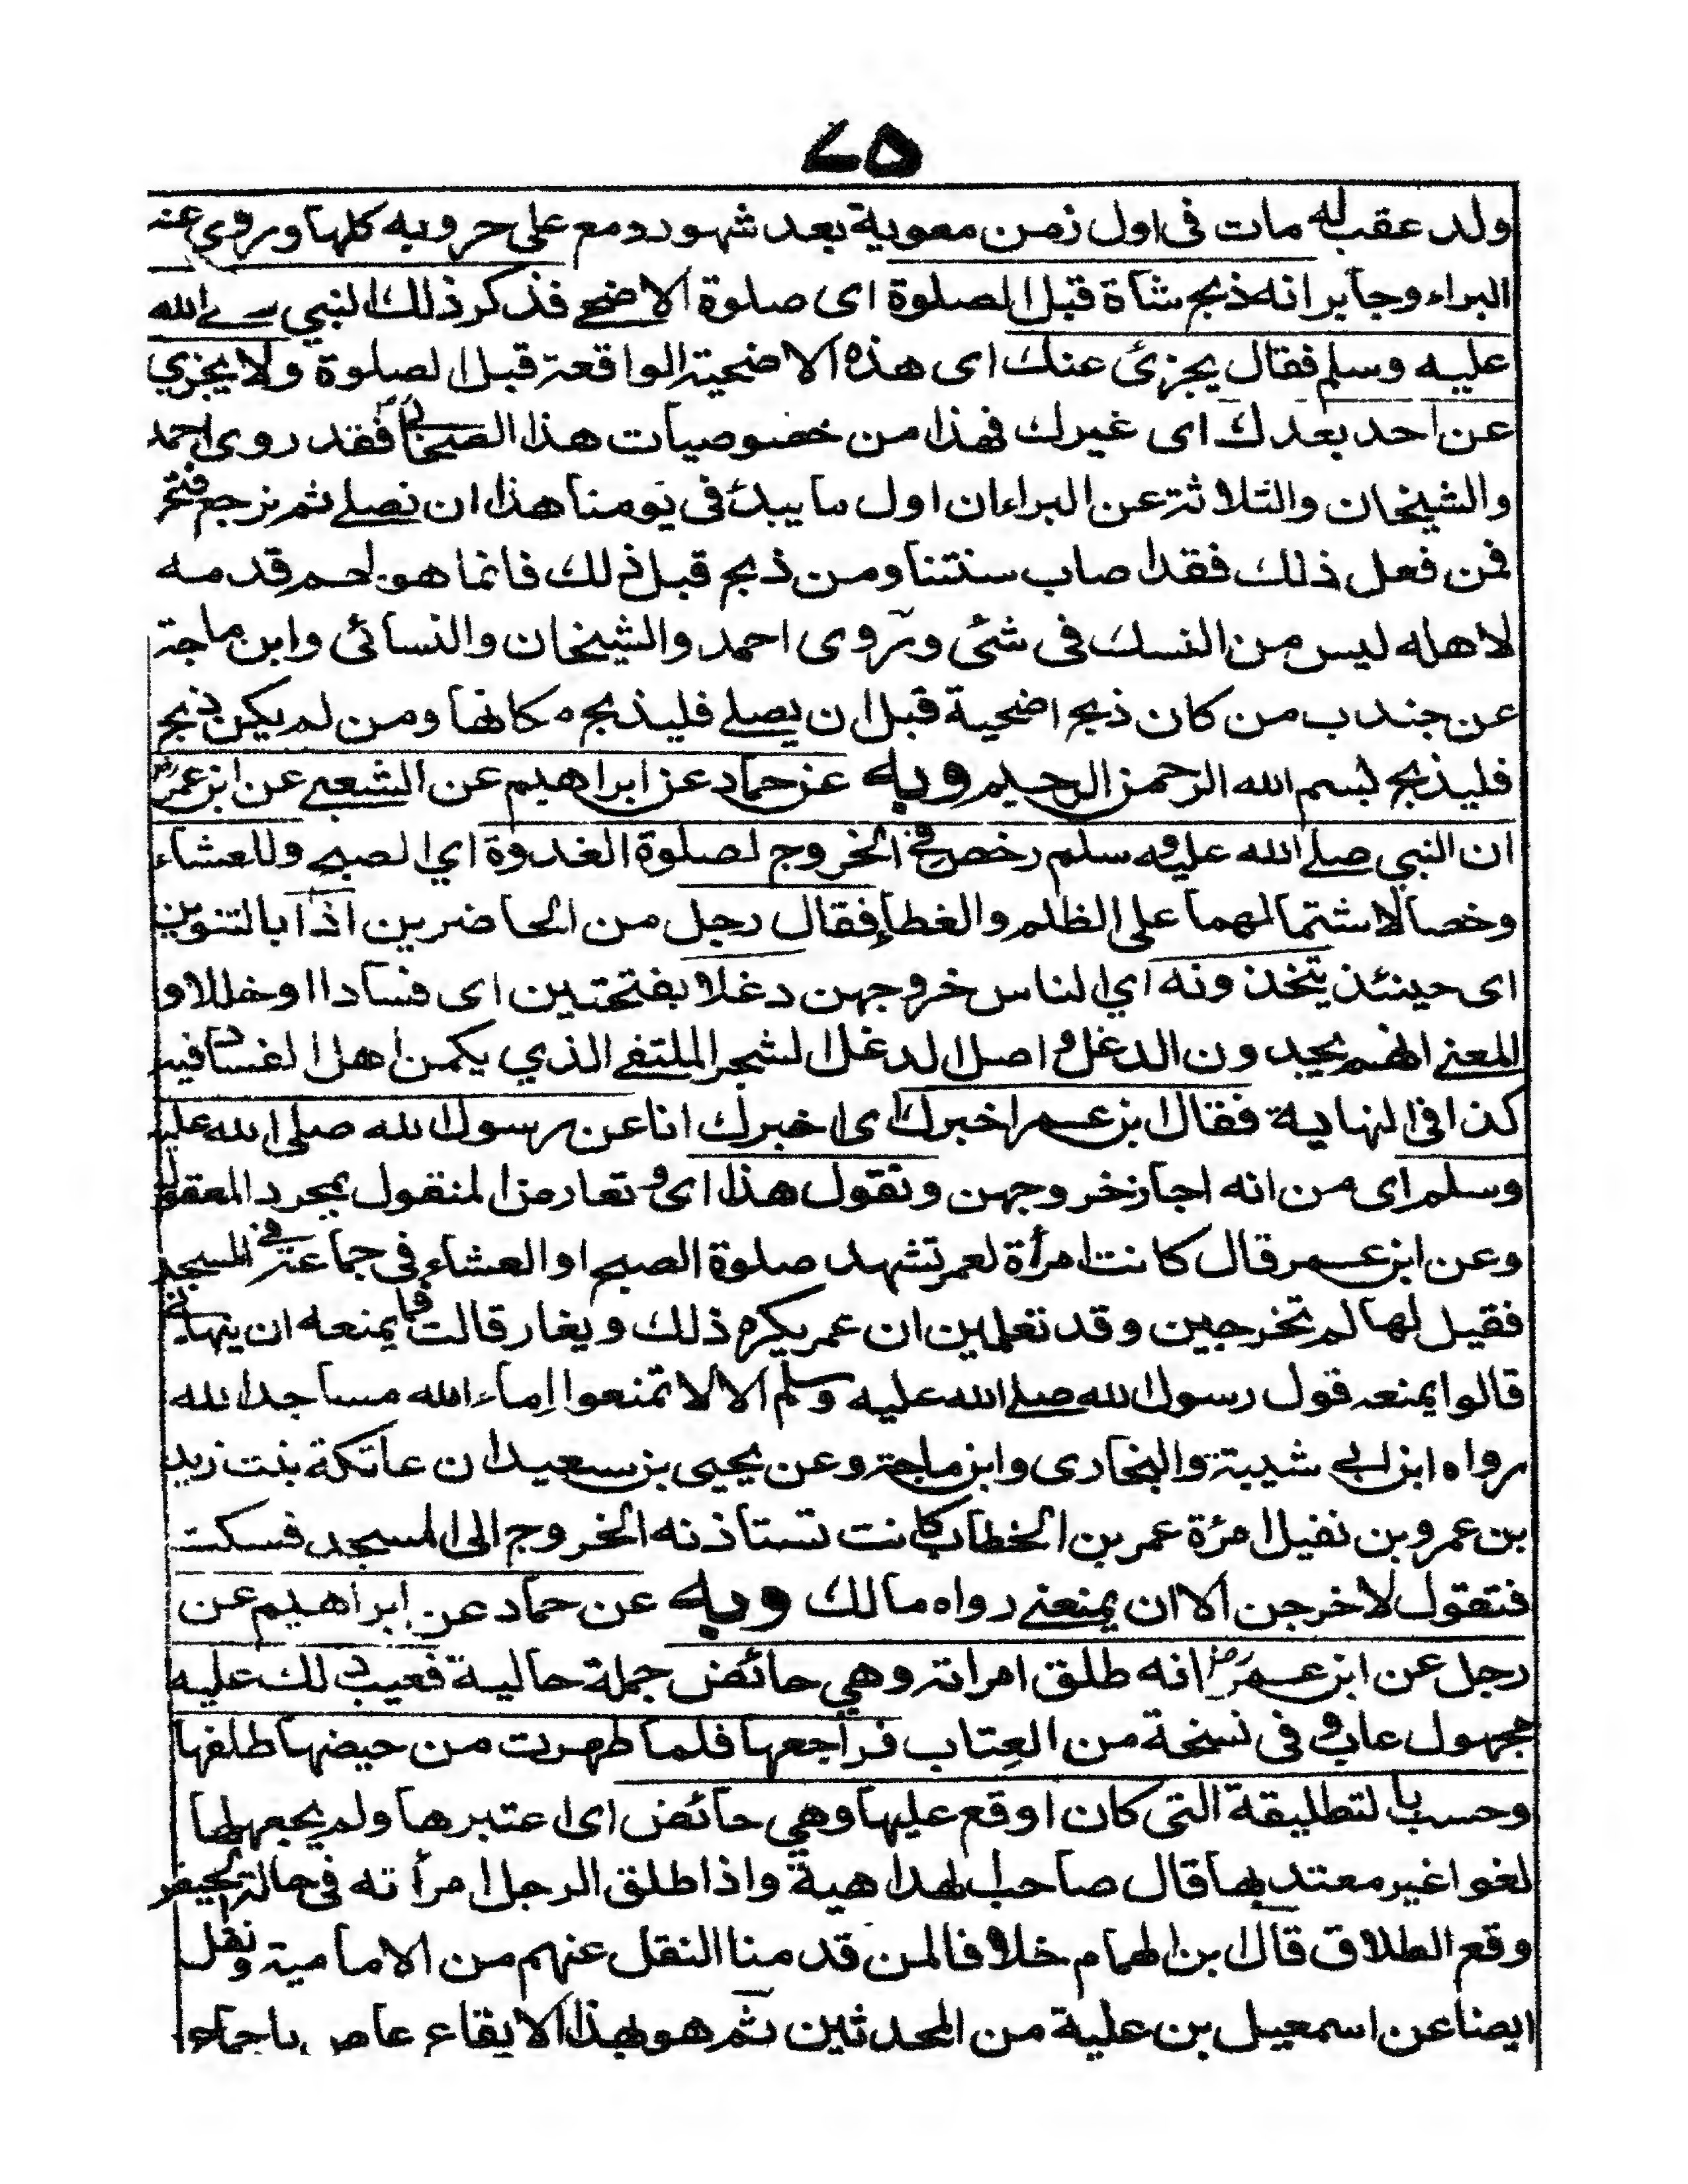 ٧٥
ولد عقب له مات فى اول زمن معوية بعد شهوده مع على حروبه كلها وروى عنه
البراء وجابر انه ذبح شاة قبل الصلوة اى صلوة الاضحى فذكر ذلك النبي صلے الله
عليه وسلم فقال يجزئ عنك اى هذه الاضحية الواقعة قبل الصلوة ولا يجزي
عن احد بعدك اى غيرك فهذا من خصوصيات هذا الصحابى فقد روى احمد
والشيخان والثلاثة عن البراء ان اول ما يبدئ فى يومنا هذا ان نصلے ثم نرجع فننحر
فمن فعل ذلك فقد اصاب سنتنا ومن ذبح قبل ذلك فانما هو لحم قدمه
لاهله ليس من النسك فى شئى وروى احمد والشيخان والنسائى وابن ماجة
عن جندب من كان ذبح اضحية قبل ان يصلے فليذبح مكانها ومن لم يكن ذبح
فليذبح بسم الله الرحمن الرحيم وبه عن حماد عن ابراهيم عن الشعبے عن ابن عمر رض
ان النبي صلے الله عليه وسلم رخص فى الخروج لصلوة الغدوة اي الصبح وللعشاء
وخصا لاشتمالهما على الظلم والغطاء فقال رجل من الحاضرين اذًا بالتنوين
اى حينئذ يتخذونه اي الناس خروجهن دغلا بفتحتين اى فسادا اوخللا و
المعنے انهم يجدون الدغل و اصل الدغل الشجر الملتف الذي يكمن اهل الفساد فيه
كذا فى النهاية فقال ابن عمر اخبرك اى اخبرك انا عن رسول الله صلى الله عليه
وسلم اى من انه اجاز خروجهن وتقول هذا اى وتعارض المنقول بمجرد المعقول
وعن ابن عمر قال كانت امرأة لعمر تشهد صلوة الصبح او العشاء فى جماعة فى المسجد
فقيل لها لم تخرجين وقد تعلمين ان عمر يكره ذلك ويغار قالت فما يمنعه ان ينهانى
قالوا يمنعه قول رسول الله صلے الله عليه وسلم الا لا تمنعوا اِماء الله مساجد الله
رواه ابن ابى شيبة والبخارى وابن ماجة وعن يحيى بن سعيد ان عاتكة بنت زيد
بن عمرو بن نفيل امرءة عمر بن الخطاب كانت تستاذنه الخروج الى المسجد فسكت
فتقول لاخرجن الا ان يمنعنے رواه مالك وبه عن حماد عن ابراهيم عن
رجل عن ابن عمر رض انه طلق امراته وهي حائض جملة حالية فعيب ذلك عليه
مجهول عاب و فى نسخة من العِتاب فراجعها فلما طهرت من حيضها طلقها
وحسب بالتطليقة التى كان اوقع عليها وهي حائض اى اعتبرها ولم يجعلها
لغوا غير معتد بها قال صاحب الهداهية واذا طلق الرجل امرأته فى حالة الحيض
وقع الطلاق قال ابن الهمام خلافا لمن قدمنا النقل عنهم من الامامية ونقل
ايضا عن اسمعيل بن علية من المحدثين ثم هو بهذا الايقاع عاص باجماع